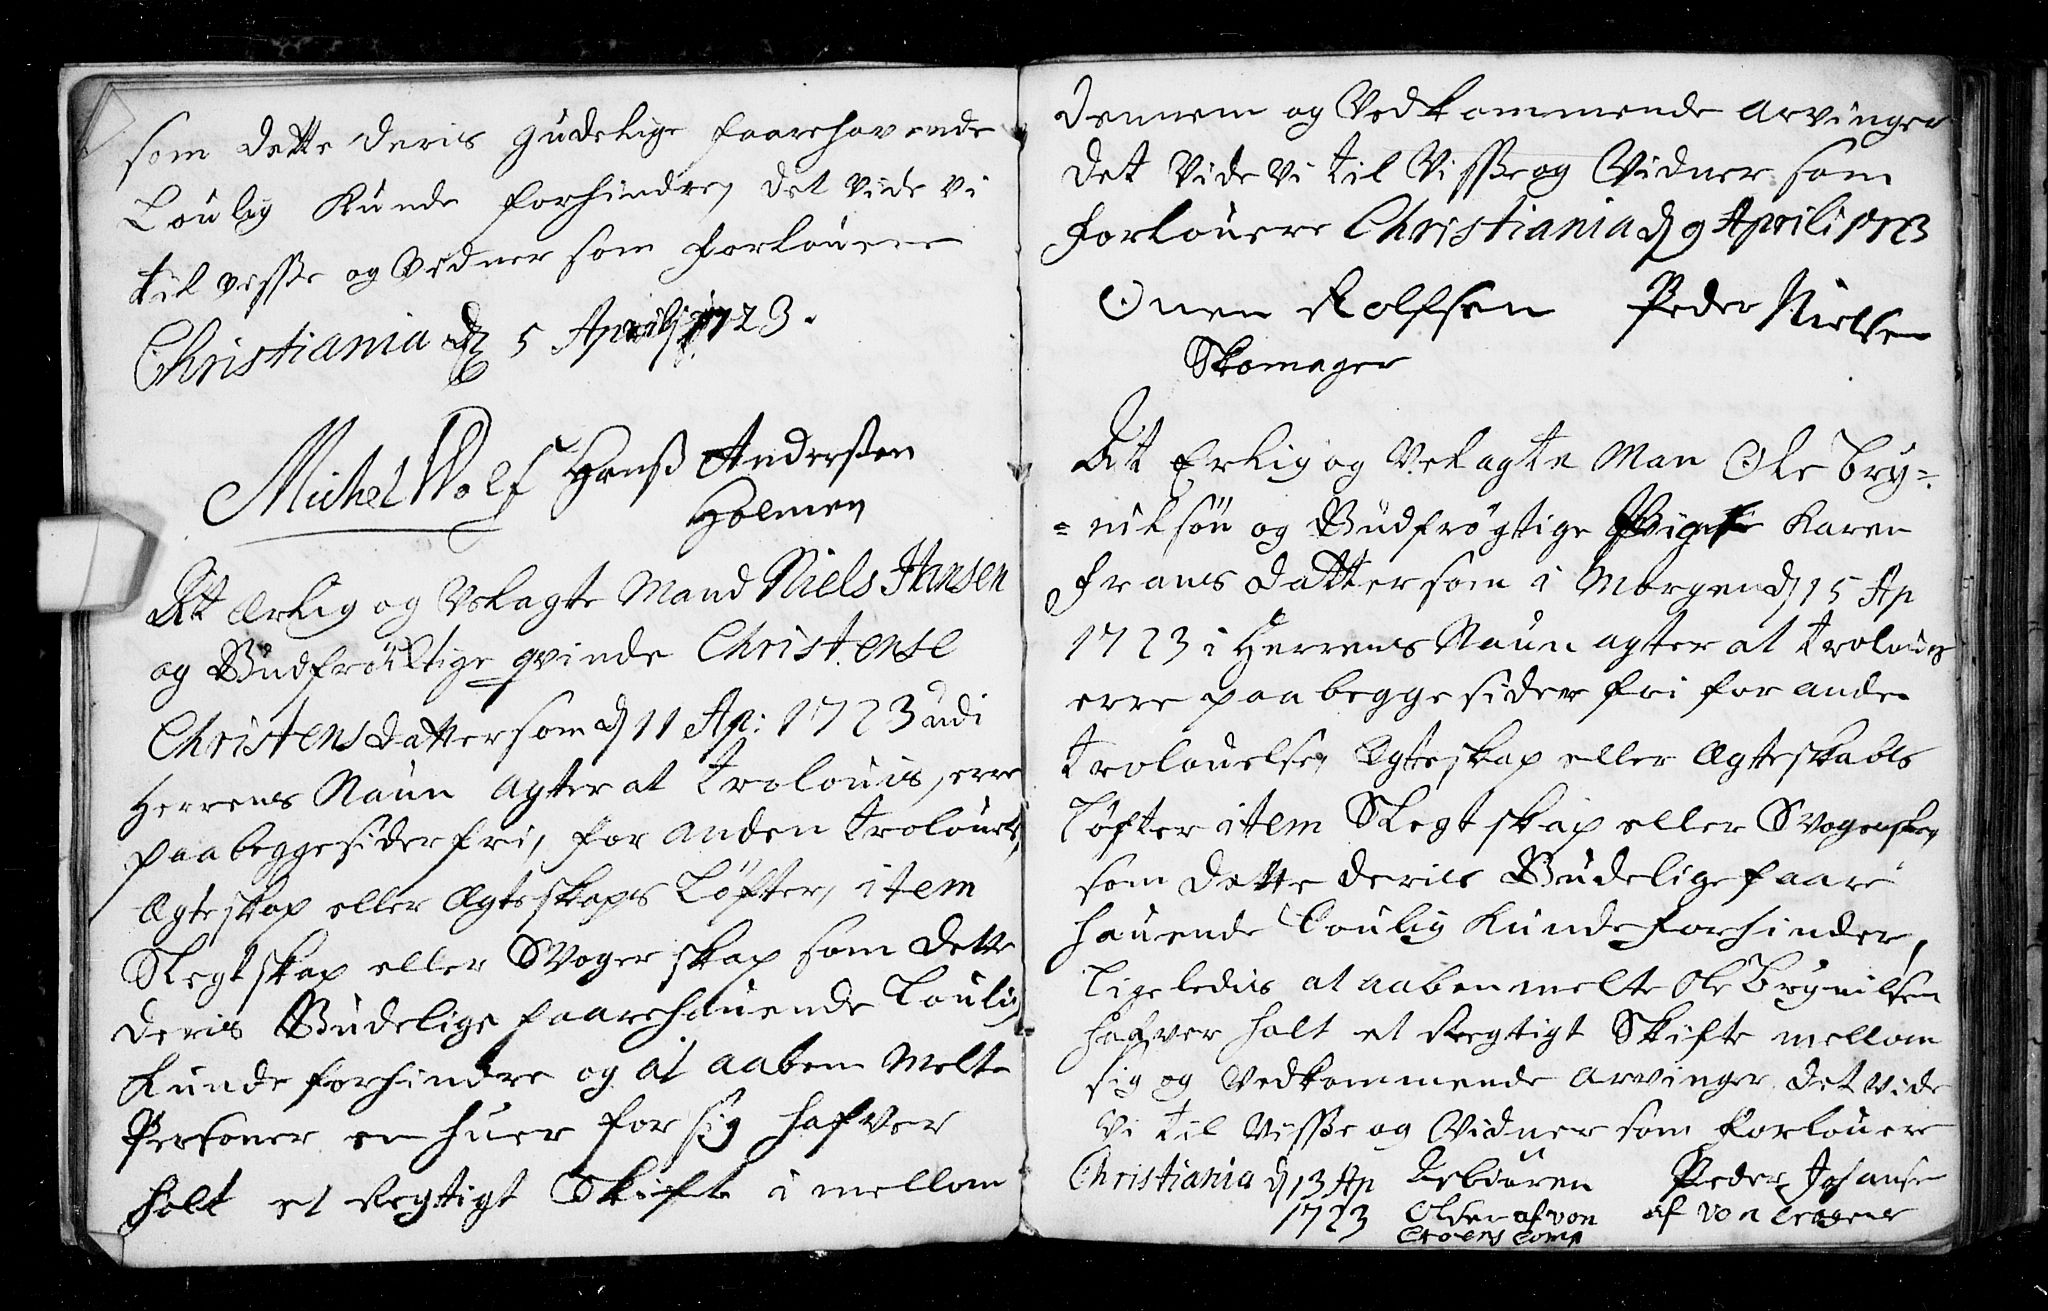 som dette deris gudelige faarehavende
Loulig Kunde forhindre, det vide vi
til visse og Vidner som forlouere
Christiania d 5 Aprilj 1723.
Michel Wolf Hanß Anderßen
Holmen
At ærlig og Velagte Mand Niels Hansen
og Gudfröctige qvinde Christense
Christensdatter som d 11 Ap: 1723 udi
Herrens Naun agter at trolouis, erre
paa begge sider fri, for anden trolouels,
Ægteskap eller Ægteskaps Löfter, item
Slegtskap eller Svogerskap som dette
deris Gudelige faarehauende Loulig
Kunde forhindre og at aabenmelte
Personer en huer for sig hafver
holt et Regtigt Skifte i mellom
dennem og Vedkommende arvinger
det Vide vi til Visse og Vidner som
forlouere Christiania d 9 Aprili 1723
Onen Rolfsen Peder Nielsen
Skomager
At Erlig og Velagte Man Ole Bry=
=nilsön og Gudfrögtige Pige Karen
frans datter som i Morgen d 15 Ap
1723 i Herrens Naun agter at trolouis
erre paa begge sider fri for anden
trolouelse, Ægteskap eller Ægteskabs
Löfter item Slegtskap eller Svogerskap
som dette deris Gudelige faare
hauende Loulig Kunde forhinder,
Ligeledis at aabenmelte Ole Brynilsen
hafver holt et Regtigt Skifte mellom
sig og Vedkommende arvinger det vide
vi til Visse og Vidner som forlouere
Christiania d 13 Ap Peder Johanse
1723 Olsen af von af von